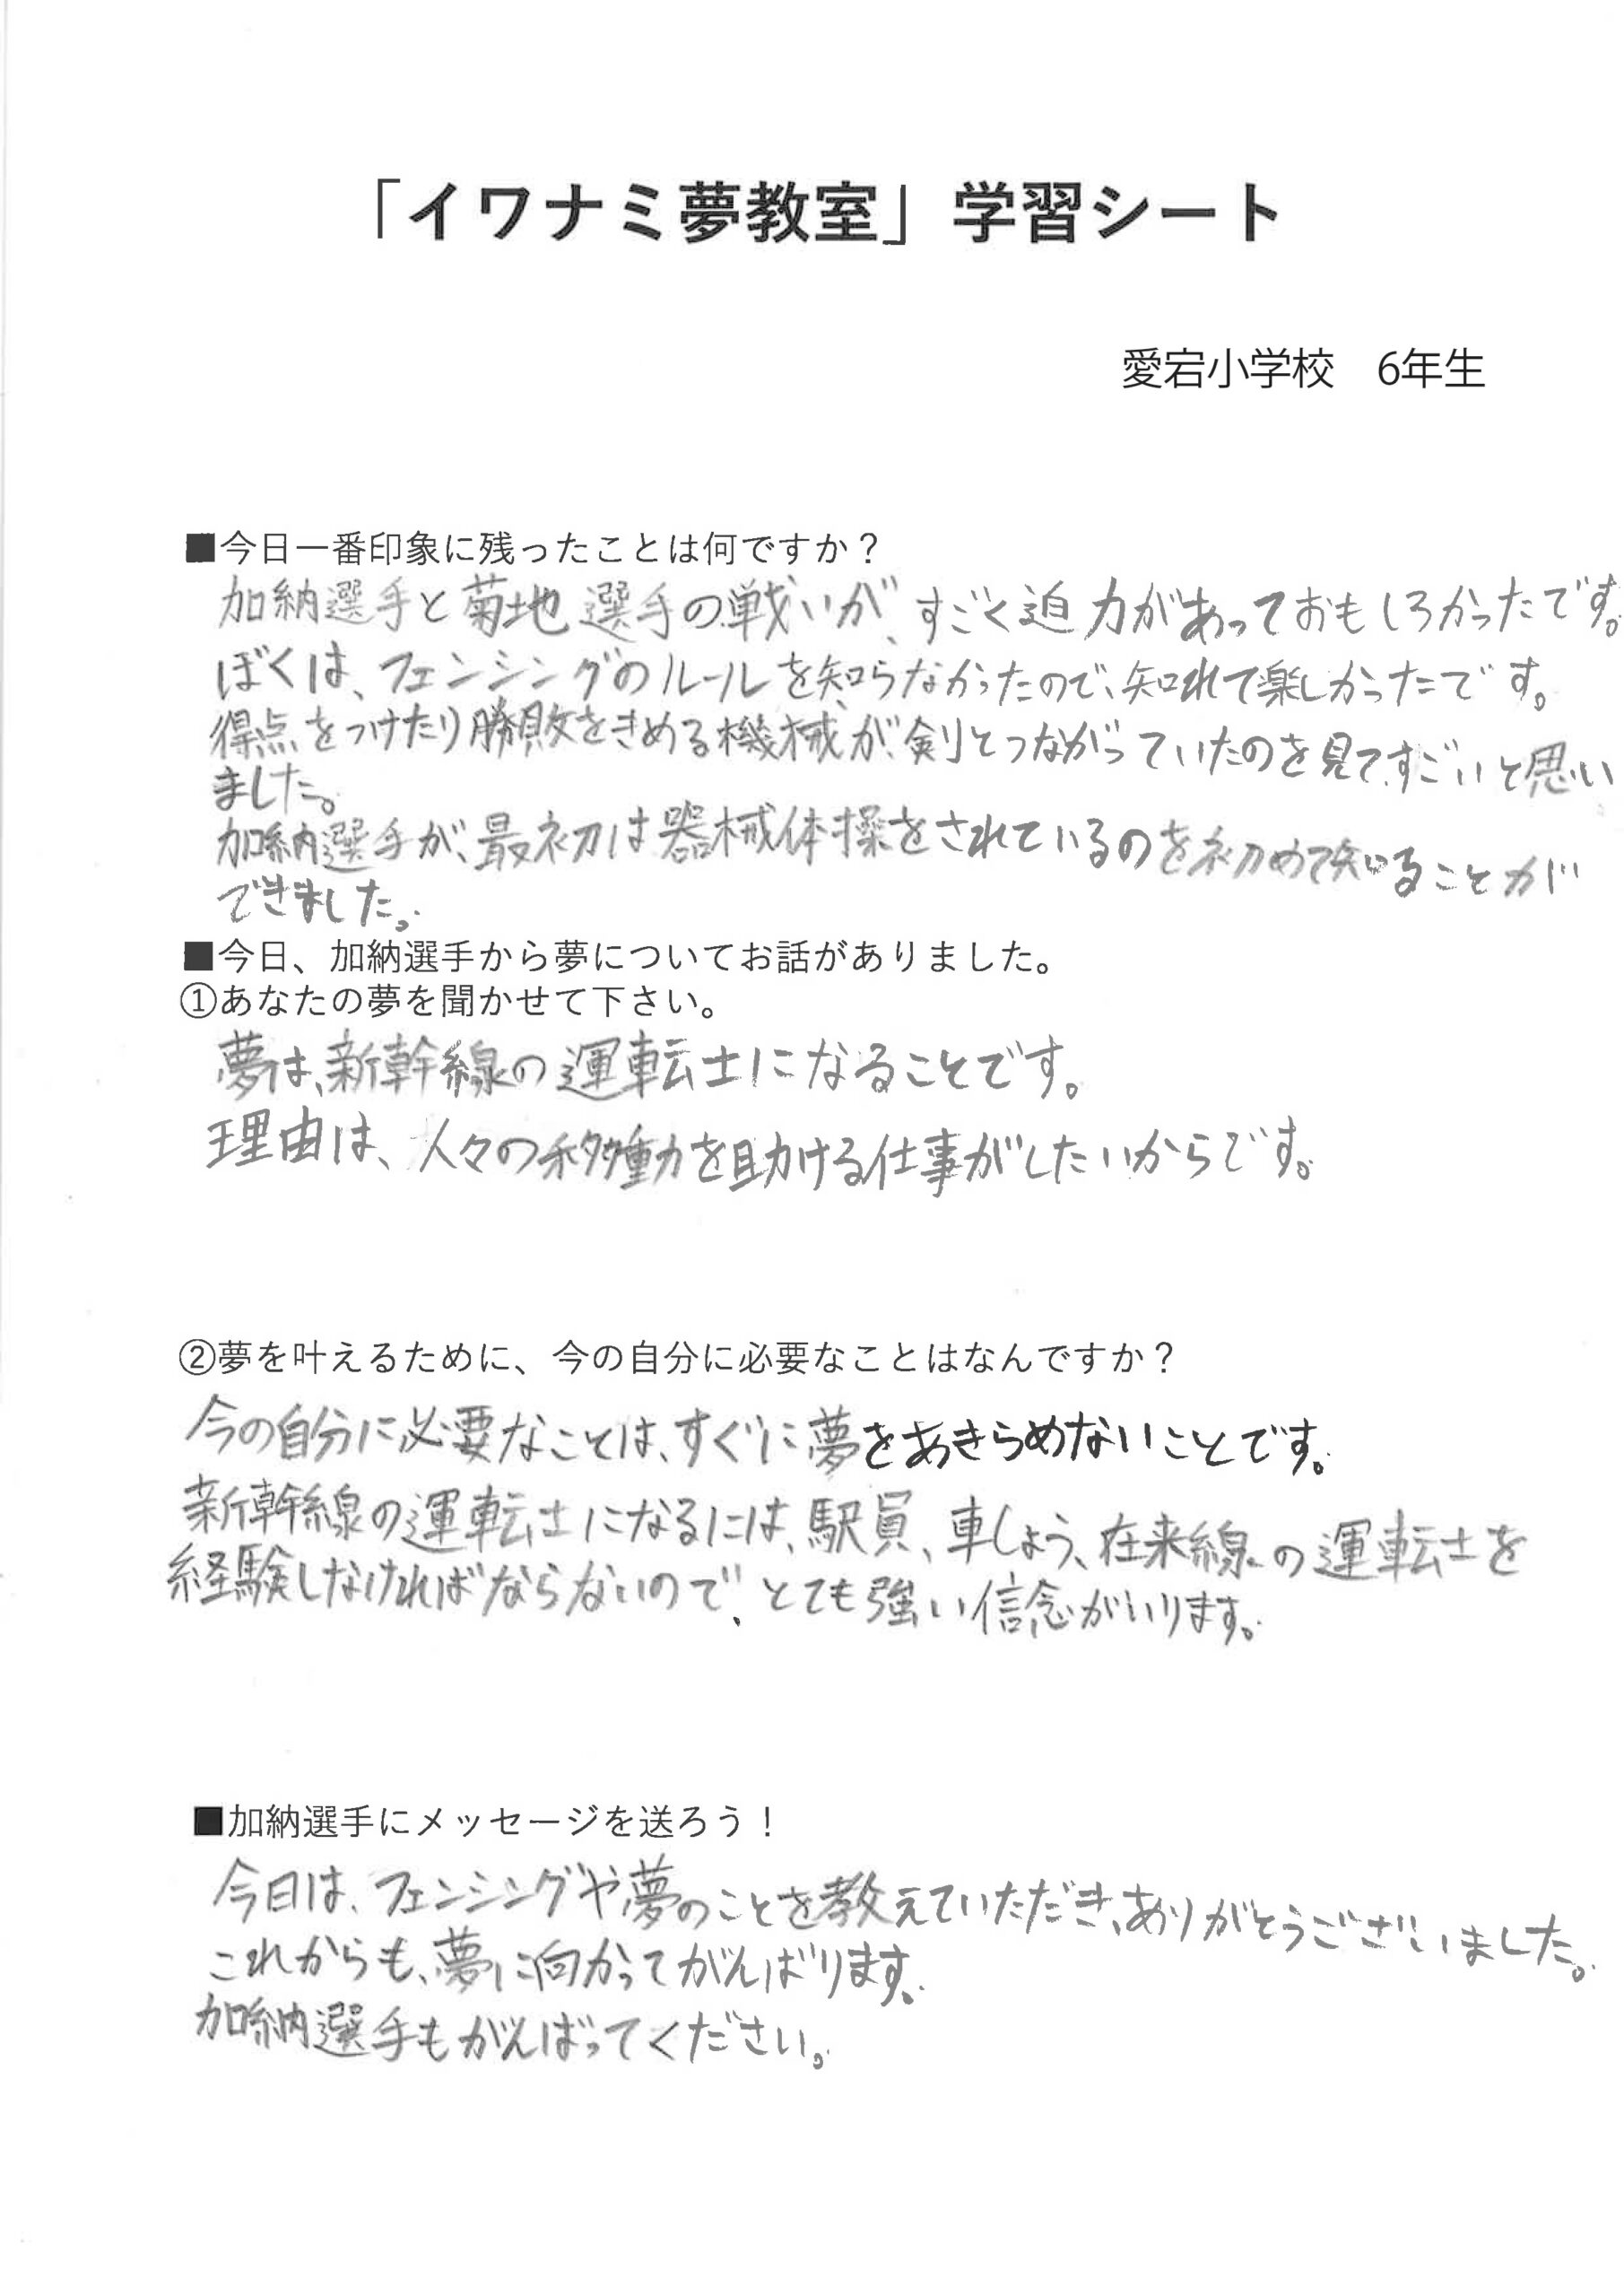 「イワナミ夢教室」学習シート
愛宕小学校　6年生
■今日一番印象に残ったことは何ですか？
加納選手と菊地選手の戦いが、すごく迫力があっておもしろかったです。
ぼくは、フェンシングのルールを知らなかったので、知れて楽しかったです。
得点をつけたり勝敗をきめる機械が、剣とつながっていたのを見て、すごいと思い
ました。
加納選手が、最初は器械体操をされているのを初めて知ることが
できました。
■今日、加納選手から夢についてお話がありました。
①あなたの夢を聞かせて下さい。
夢は、新幹線の運転士になることです。
理由は、人々の移動を助ける仕事がしたいからです。
②夢を叶えるために、今の自分に必要なことはなんですか？
今の自分に必要なことは、すぐに夢をあきらめないことです。
新幹線の運転士になるには、駅員、車しょう、在来線の運転士を
経験しなければならないので、とても強い信念がいります。
■加納選手にメッセージを送ろう！
今日は、フェンシングや夢のことを教えていただき、ありがとうございました。
これからも、夢に向かってがんばります。
加納選手もがんばってください。